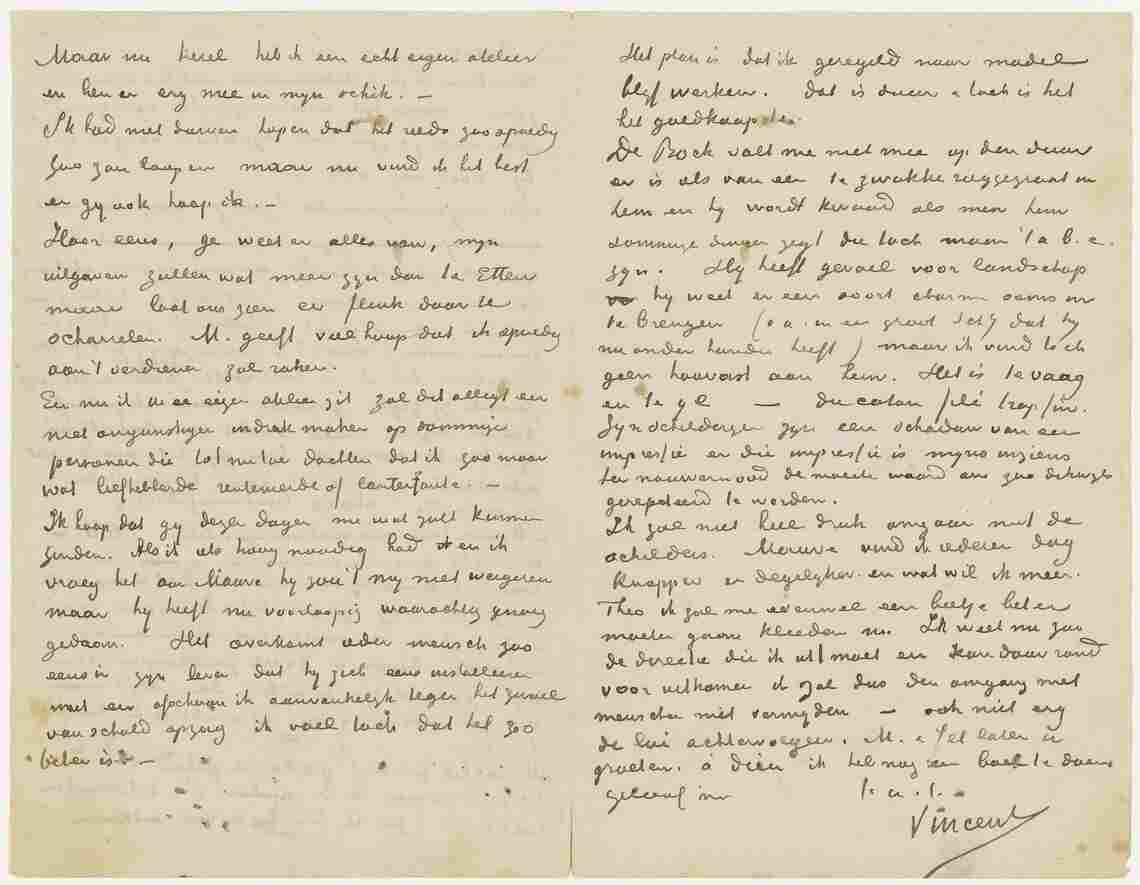 Maar nu kerel heb ik een echt eigen atelier
en ben er erg mee in mijn schik. —
Ik had niet durven hopen dat het reeds zoo spoedig
zoo zou loopen maar nu vind ik het best
en gij ook hoop ik. —
Hoor eens, ge weet er alles van, mijn
uitgaven zullen wat meer zijn dan te Etten
maar laat ons zien er flink door te
scharrelen. M. geeft veel hoop dat ik spoedig
aan 't verdienen zal raken.
En nu ik in een eigen atelier zit zal dit allligt een
niet ongunstigen indruk maken op sommige
personen die tot nu toe dachten dat ik zoo maar
wat liefhebberde rentenierde of lanterfantte. —
Ik hoop dat gij dezer dagen me wat zult kunnen
zenden. Als ik als hoog noodig had en ik
vroeg het aan Mauve hij zou 't mij niet weigeren
maar hij heeft nu voorloopig waarachtig genoeg
gedaan. Het overkomt ieder mensch zoo
eens in zijn leven dat hij zich eens installeeren
moet en ofschoon ik aanvankelijk tegen het geval
van schuld opzag ik voel toch dat het zoo
beter is. —
Het plan is dat ik geregeld naar model
blijf werken. Dat is duur & toch is het
het goedkoopste.
De Bock valt me niet mee op den duur
er is als van een te zwakke ruggegraat in
hem en hij wordt kwaad als men hem
sommige dingen zegt die toch maar 't a.b.c.
zijn. Hij heeft gevoel voor landschap
hij weet er een soort charme soms in
te brengen (o.a. in een groot schij dat hij
nu onder handen heeft) maar ik vind toch
geen houvast aan hem. Het is te vaag
en te ijl — du coton filé trop fin.
Zijn schilderijen zijn een schaduw van een
impressie en die impressie is mijns inziens
ter nauwernood de moeite waard om zoo dikwijls
gerepeteerd te worden.
Ik zal niet heel druk omgaan met de
schilders. Mauve vind ik iederen dag
knapper en degelijker en wat wil ik meer.
Theo ik zal me evenwel een beetje beter
moeten gaan kleeden nu. Ik weet nu zoo
de directie die ik uit moet en kan daar rond
voor uitkomen ik zal dus den omgang met
menschen niet vermijden — ook niet erg
de lui achtervolgen. M. & Jet laten U
groeten. à dieu ik heb nog een boel te doen
geloof me
t. à. t.
Vincent